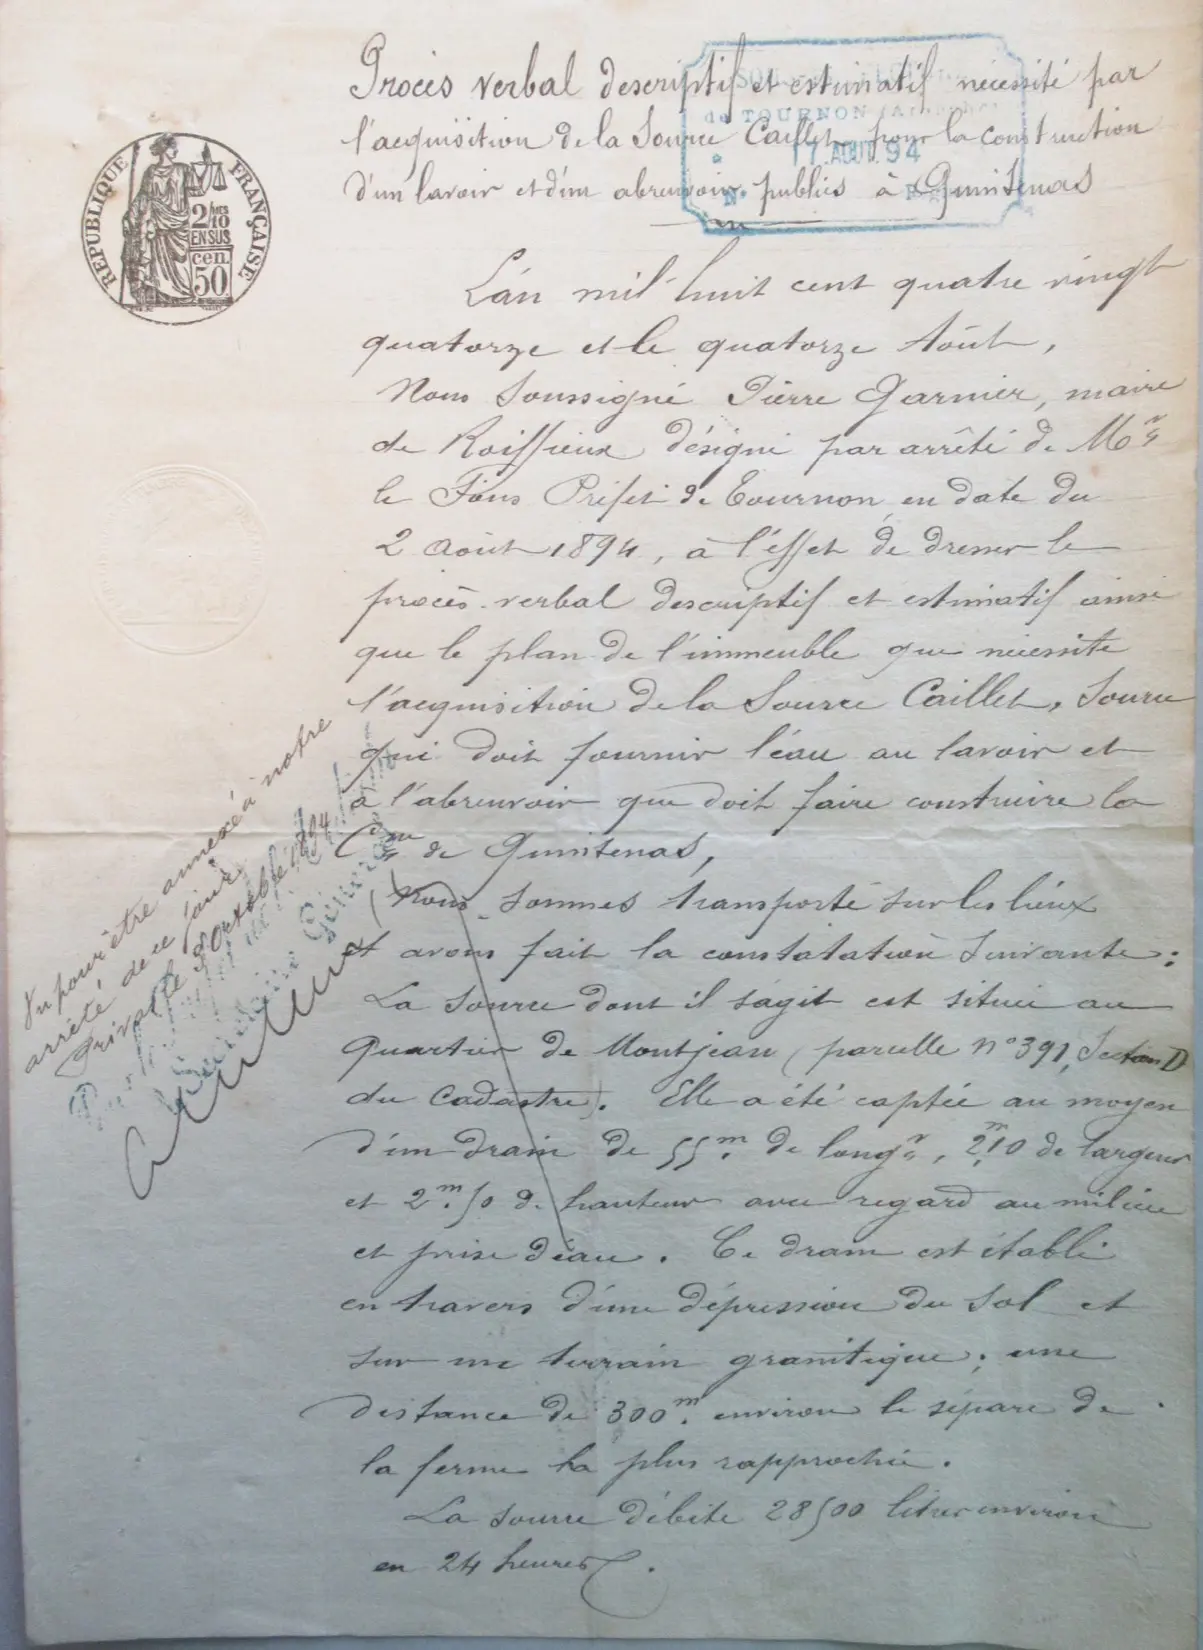 Procès verbal descriptif et estimatif nécessité par
l'acquisition de la Source Caillet pour la construction
d'un lavoir et d'un abreuvoir publics à Quintenas
de TOURNON
17 AOUT 94
N°
RÉPUBLIQUE FRANÇAISE
2/10 MES
EN SUS
50 cen
L'an mil huit cent quatre vingt
quatorze et le quatorze Août,
Nous Soussigné Pierre Garnier, maire
de Roiffieux désigné par arrêté de Mr
le Sous Préfet de Tournon en date du
2 Août 1894, à l'effet de dresser le
procès-verbal descriptif et estimatif ainsi
que le plan de l'immeuble que nécessite
l'acquisition de la Source Caillet, Source
qui doit fournir l'eau au lavoir et
à l'abreuvoir que doit faire construire la
Cne de Quintenas,
Nous sommes transporté sur les lieux
et avons fait la constatation suivante :
La source dont il s'agit est située au
quartier de Montjean (parcelle n° 391, Section D
du Cadastre). Elle a été captée au moyen
d'un drain de 55m. de longr, 2m.10 de largeur
et 2m.50 de hauteur avec regard au milieu
et prise d'eau. Ce drain est établi
en travers d'une dépression du sol et
sur un terrain granitique ; une
distance de 300m. environ le sépare de
la ferme la plus rapprochée.
La source débite 28500 litres environ
en 24 heures.
Vu pour être annexé à notre
arrêté de ce jour
Privas le 2 Octobre 1894
Pour le Préfet
Le Secrétaire Général